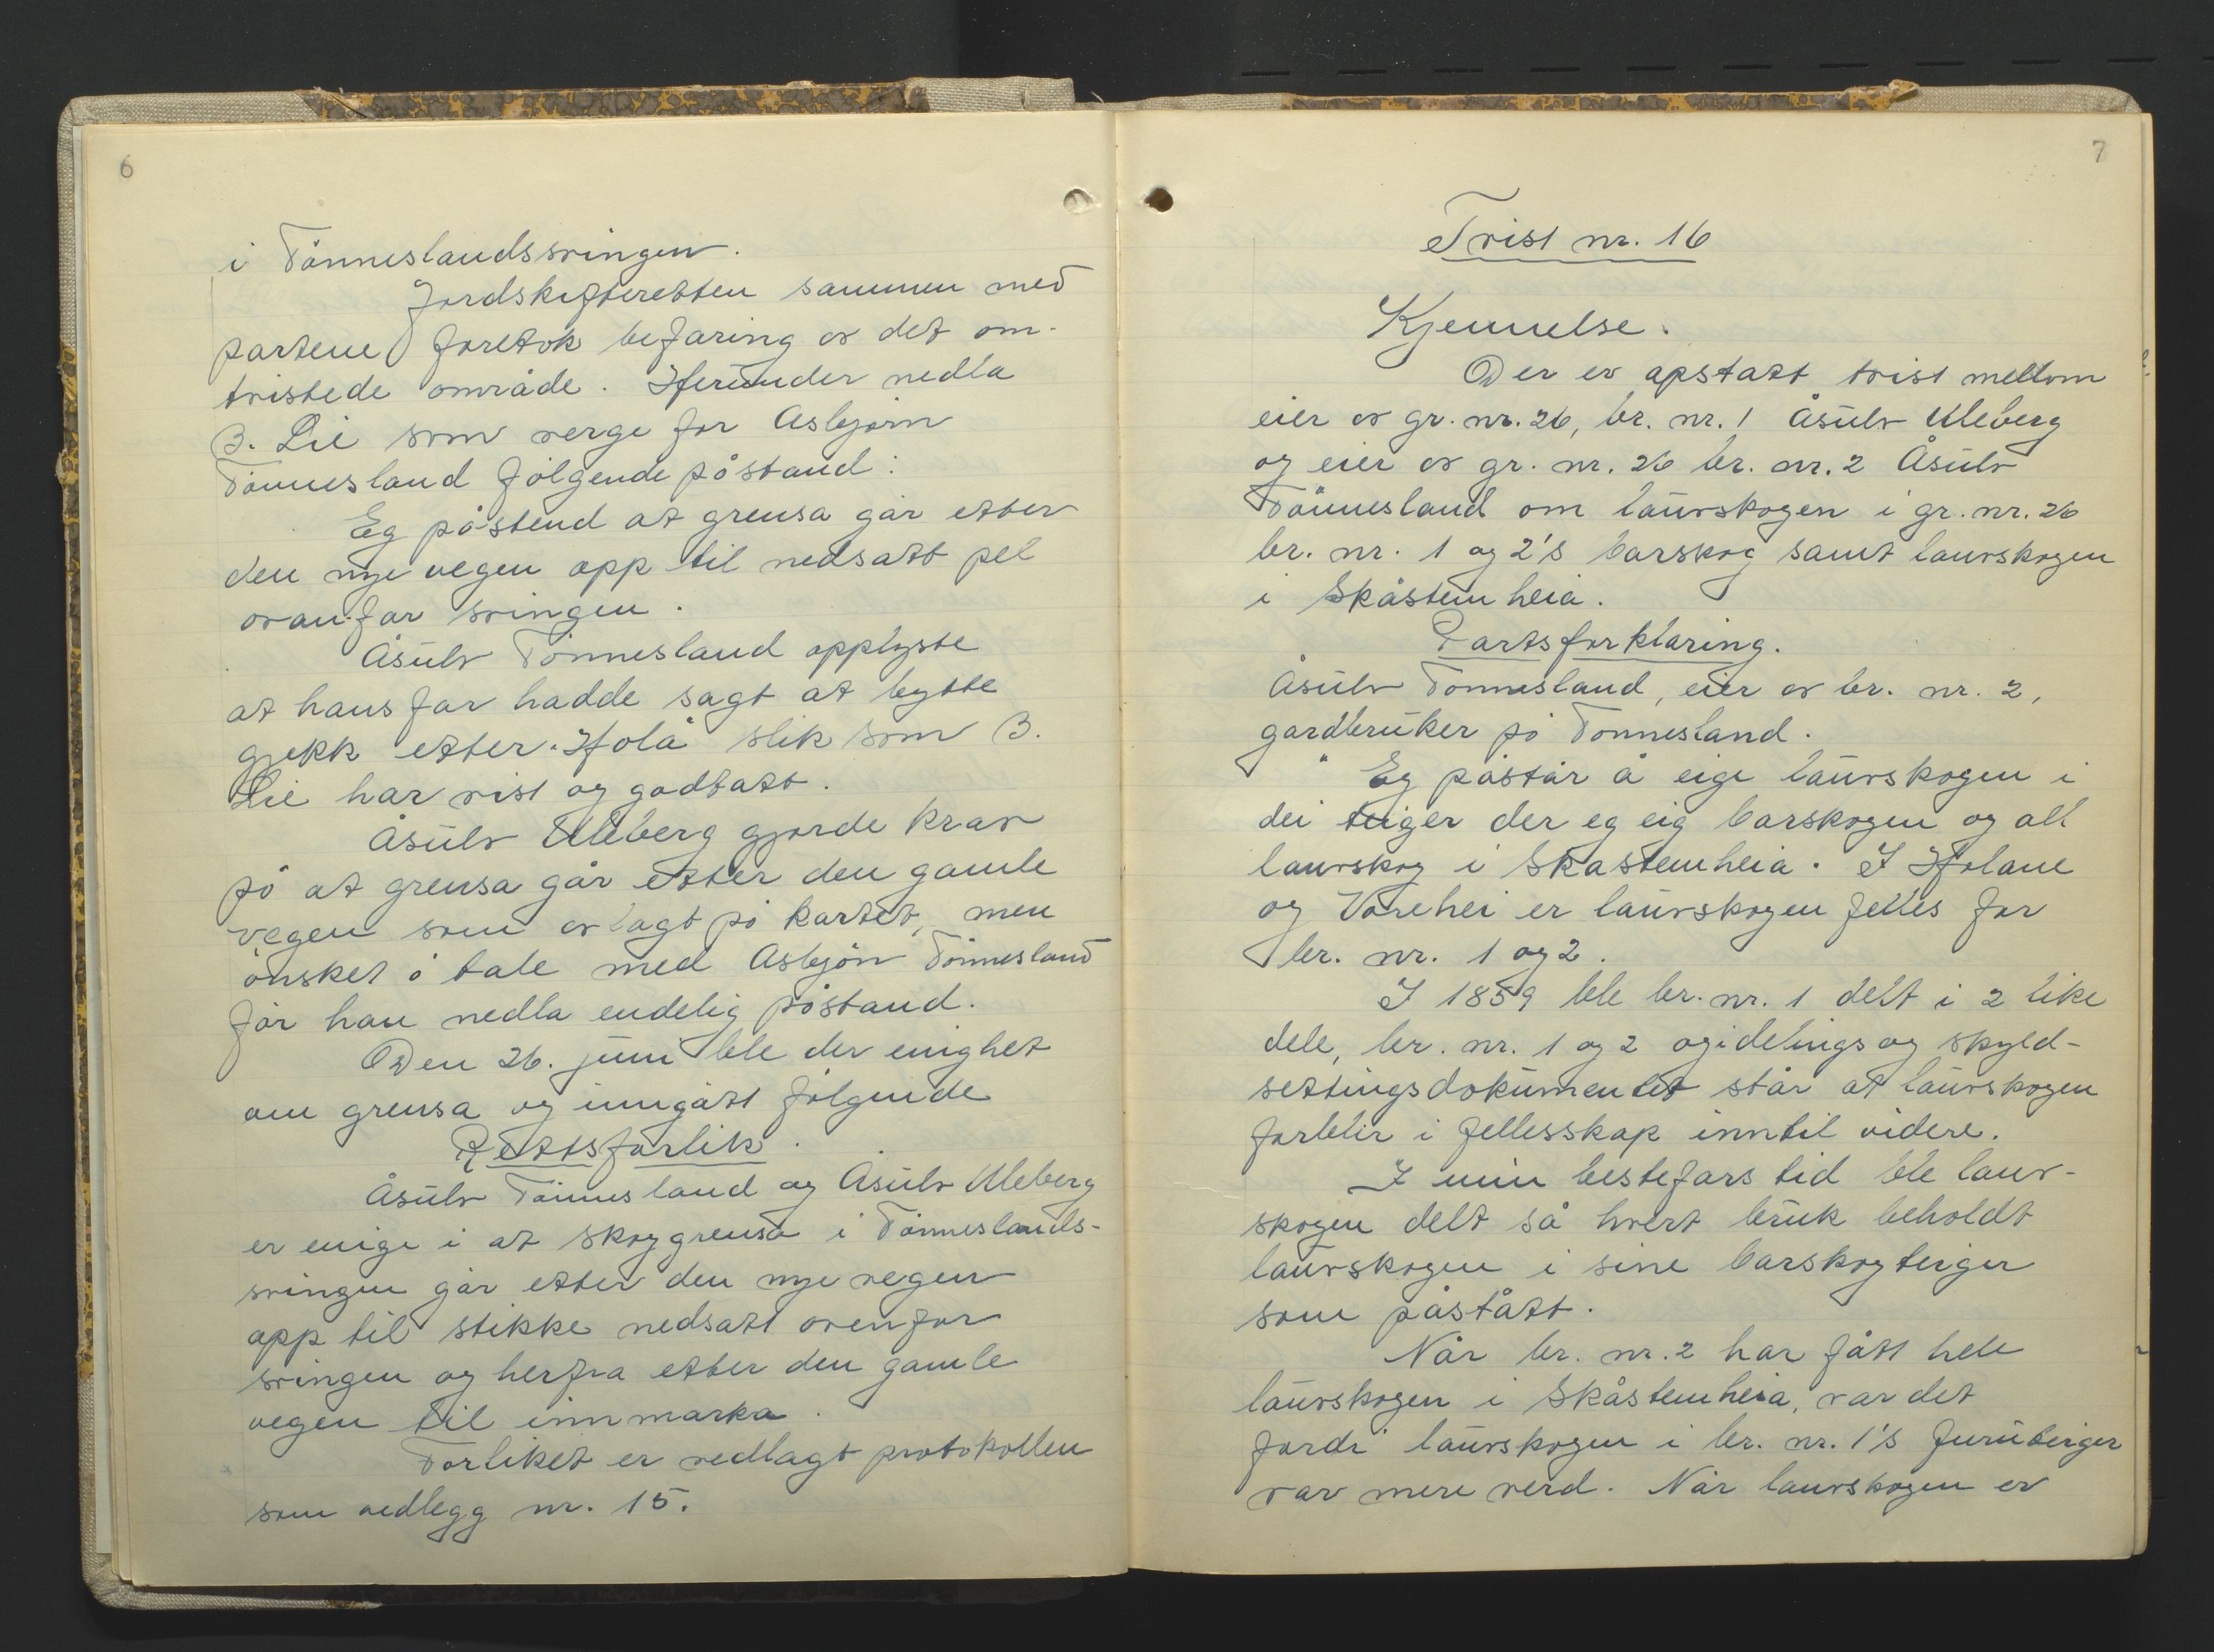 6
i Tönneslandssvingen.
Jordskifteretten sammen med
partene foretok befaring av det om-
tvistede område. Herunder nedla
B. Lie som verge for Asbjörn
Tönnesland fölgende påstand:
Eg påstend at grensa går etter
den nye vegen opp til nedsatt pel
ovanfor svingen.
Åsulv Tönnesland opplyste
at hans far hadde sagt at bytte
gjekk etter Holå slik som B.
Lie har vist og godtatt.
Åsulv Uleberg gjorde krav
på at grensa går etter den gamle
vegen som er lagt på kartet, men
önsket å tale med Asbjön Tönnesland
för han nedla endelig påstand.
Den 26. juni ble der enighet
om grensa og inngått fölgende
Rettsforlik.
Åsulv Tönnesland og Åsulv Uleberg
er enige i at skoggrensa i Tönneslands-
svingen går etter den nye vegen
opp til stikke nedsatt ovenfor
svingen og herfra etter den gamle
vegen til innmarka.
Forliket er vedlagt protokollen
som vedlegg nr. 15.
7
Tvist nr. 16
Kjennelse.
Der er opstatt tvist mellom
eier av gr. nr. 26, br. nr. 1 Åsulv Uleberg
og eier av gr. nr. 26 br. nr. 2 Åsulv
Tönnesland om lauvskogen i gr. nr. 26
br. nr. 1 og 2's barskog samt lauvskogen
i Skåstemheia.
Partsforklaring.
Åsulv Tönnesland, eier av br. nr. 2,
gardbruker på Tonnesland.
" Eg påstår å eige lauvskogen i
dei teiger der eg eig barskogen og all
lauvskog i Skastemheia. I Holane
og Vårehei er lauvskogen felles for
br. nr. 1 og 2.
I 1859 ble br. nr. 1 delt i 2 like
dele, br. nr. 1 og 2 og i delings og skyld-
settingsdokumentet står at lauvskogen
forblir i fellesskap inntil videre.
I min bestefars tid ble lauv-
skogen delt så hvert bruk beholdt
lauvskogen i sine barskogteiger
som påstått.
Når br. nr. 2 har fått hele
lauvskogen i Skåstemheia, var det
fordi lauvskogen i br. nr. 1's furuteiger
var mere verd. Når lauvskogen er